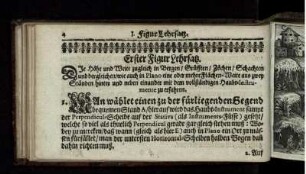 4 I. Figur Lehrsatz.
Erster Figur Lehrsatz.
Die Höhe und Weite zugleich in Bergen/ Schlössern/ Zöchen/ Schachten
und dergleichen/ wie auch in Plano eine oder mehr Flächen-Weite aus zween
Ständen hinten und neben einander mit dem vollständigen Haubt-Instru-
mente zu erfahren.
1. Man wählet einen zu der fürliegenden Gegend
bequemen Stand A. Hierauf wird das Haubtinstrument samt
der Perpendicul-Scheibe auf der Stativa (als Instruments-Füsse) gesetzt/
welche so viel als thunlich Perpendicul gerade zugleich stehen muß: Wo-
bey zu mercken/ daß wann (gleich als hier E) auch in Plano ein Ort zu mäs-
sen fürfället/ man der untersten Horizontal-Scheiben halben Bogen das
dahin richten muß.
2. Auf